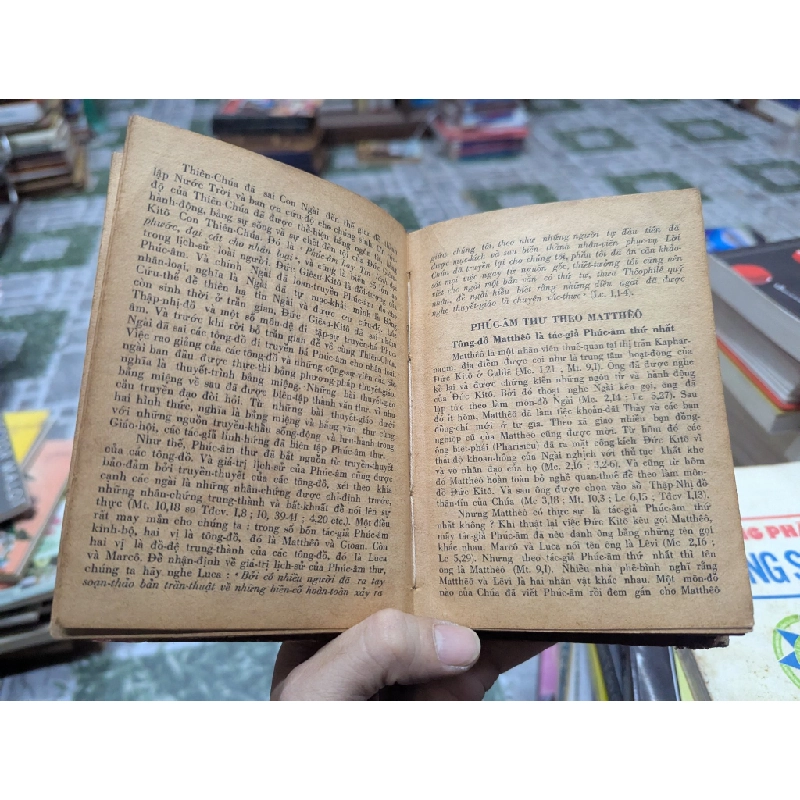 Thiên-Chúa đã sai Con Ngài đến thế gian để thiết
lập Nước Trời và ban ơn cứu độ cho chúng sinh. Ơn cứu
độ của Thiên Chúa đã được thể-hiện bằng ngôn ngữ, bằng
hành-động, bằng sự sống và sự chết
Kitô Con Thiên-Chúa. Đó là
phước, đại cát cho nhân loại,
trong lịch-sử loài người. Đức Giêsu Kitô là đối-tượng của
Phúc-âm. Và chính Ngài đã loan-truyền Phúc-âm cho
nhân-loại, nghĩa là Ngài
Cứu-thế để thiên hạ tin Ngài và được cứu-độ. Lúc
còn sinh thời ở trần gian, Đức Giêsu-Kitô đã sai các
Thập-nhị-đồ và một số môn-đệ đi tập-sự truyền-bá Phúc-
âm. Và trước khi rời bỏ trần gian để về cùng Thiên-Chúa,
Ngài đã sai các tông-đồ đi truyền bá Phúc-âm cho nhân loại.
Việc rao giảng của các tông-đồ và những cộng-sự viên các
ngài ban đầu được thực-thi bằng phương-pháp thuyết-giáo
nghĩa là thuyết-trình bằng miệng. Những bài thuyết-giáo
bằng miệng về sau đã được biên-tập thành văn-thư, vì nhu-
cầu truyền đạo đòi hỏi. Từ những bài thuyết-giáo dưới
hai hình thức, nghĩa là bằng miệng và bằng văn thư, cùng
với những nguồn truyền-khẩu sống-động và lưu-hành trong
Giáo-hội, các tác-giả linh-hứng đã biên tập Phúc-âm thư.
Như thế, Phúc-âm thư đã bắt nguồn từ truyền-thuyết
của các tông-đồ. Và giá-trị lịch-sử của Phúc-âm cũng được
bảo-đảm bởi truyền-thuyết của các tông-đồ, xét theo khía
cạnh các ngài là những nhân-chứng được chỉ-định trước,
những nhân-chứng trung-thành và bất-khuất để nói lên sự
thực (Mt. 10,18 so Tđcv. 1,8 ; 10, 39.41 ; 4.20 etc.). Một điều
rất may mắn cho chúng ta : trong số bốn tác-giả Phúc-âm
kinh-bộ, hai vị là tông-đồ, đó là Matthêô và Gioan. Còn
hai vị là đồ-đệ trung-thành của các tông-đồ, đó là Luca
và Marcô. Để nhận-định về giá-trị lịch-sử của Phúc-âm thư,
chúng ta hãy nghe Luca : "Bởi có nhiều người đã ra tay
soạn-thảo bản trần-thuật về những biến-cố hoàn-toàn xảy ra
giữa chúng tôi, theo như những người tự đầu tiên đã
được mục-kích và sau biến thành nhân-viên phục-vụ Lời
Chúa đã truyền lại cho chúng tôi, phần tôi đã ân cần khảo-
sát mọi việc ngay tự nguồn gốc, thiết-tưởng tôi cũng nên
viết cho ngài một bản văn có thứ tự, thưa Théophilê quý
nhân, để ngài hiểu biết rằng những điều ngài đã được
nghe thuyết-giáo là chuyện xác-thực" (Lc. 1,1-4).
PHÚC-ÂM THƯ THEO MATTHÊÔ
Tông-đồ Matthêô là tác-giả Phúc-âm thứ nhất
Matthêô là một nhân viên thuế-quan tại thị trấn Kaphar-
naum, địa điểm được coi như là trung tâm hoạt-động của
Đức Kitô ở Galilê (Mc. 1,21 ; Mt. 9,1). Ông đã được nghe
kể lại và được chứng kiến những ngôn từ và hành động
của Đức Kitô. Bởi đó khi nghe Ngài kêu gọi, ông đã
lập tức theo làm môn-đồ Ngài (Mc. 2,14 ; Lc. 5,27). Sau
đó ít hôm, Matthêô đã làm tiệc khoản-đãi Thầy và các bạn
đồng-chí mới ở tư gia. Theo xã giao nhiều bạn đồng-
nghiệp cũ của Matthêô cũng được mời. Từ hôm đó các
ông biệt-phái (Pharisêu) đã ra mặt công-kích Đức Kitô vì
thái độ khoan-hồng của Ngài nghịch với thủ tục khắt khe
và vô nhân đạo của họ (Mc. 2,16 ; 3,2-6). Và cũng từ hôm
đó Matthêô hoàn toàn bỏ nghề quan-thuế để theo làm môn-
đệ Đức Kitô. Và sau ông được chọn vào số Thập-Nhị đồ
thân-tín của Chúa (Mc 3,18 ; Mt. 10,3 ; Lc 6,15 ; Tđcv 1,13).
Nhưng Matthêô có thực sự là tác-giả Phúc-âm thư
nhất không ? Khi thuật lại việc Đức Kitô kêu gọi Matthêô,
mấy tác-giả Phúc-âm đã nêu danh ông bằng những tên gọi
khác nhau. Marcô và Luca nói tên ông là Lêvi (Mc. 2,16 ;
Lc 5,29). Nhưng theo tác-giả Phúc-âm thứ nhất thì tên
ông là Matthêô (Mt. 9,1). Nhiều nhà phê-bình nghĩ rằng
Matthêô và Lêvi là hai nhân vật khác nhau. Một môn-đồ
nào của Chúa đã viết Phúc-âm rồi đem gán cho Matthêô